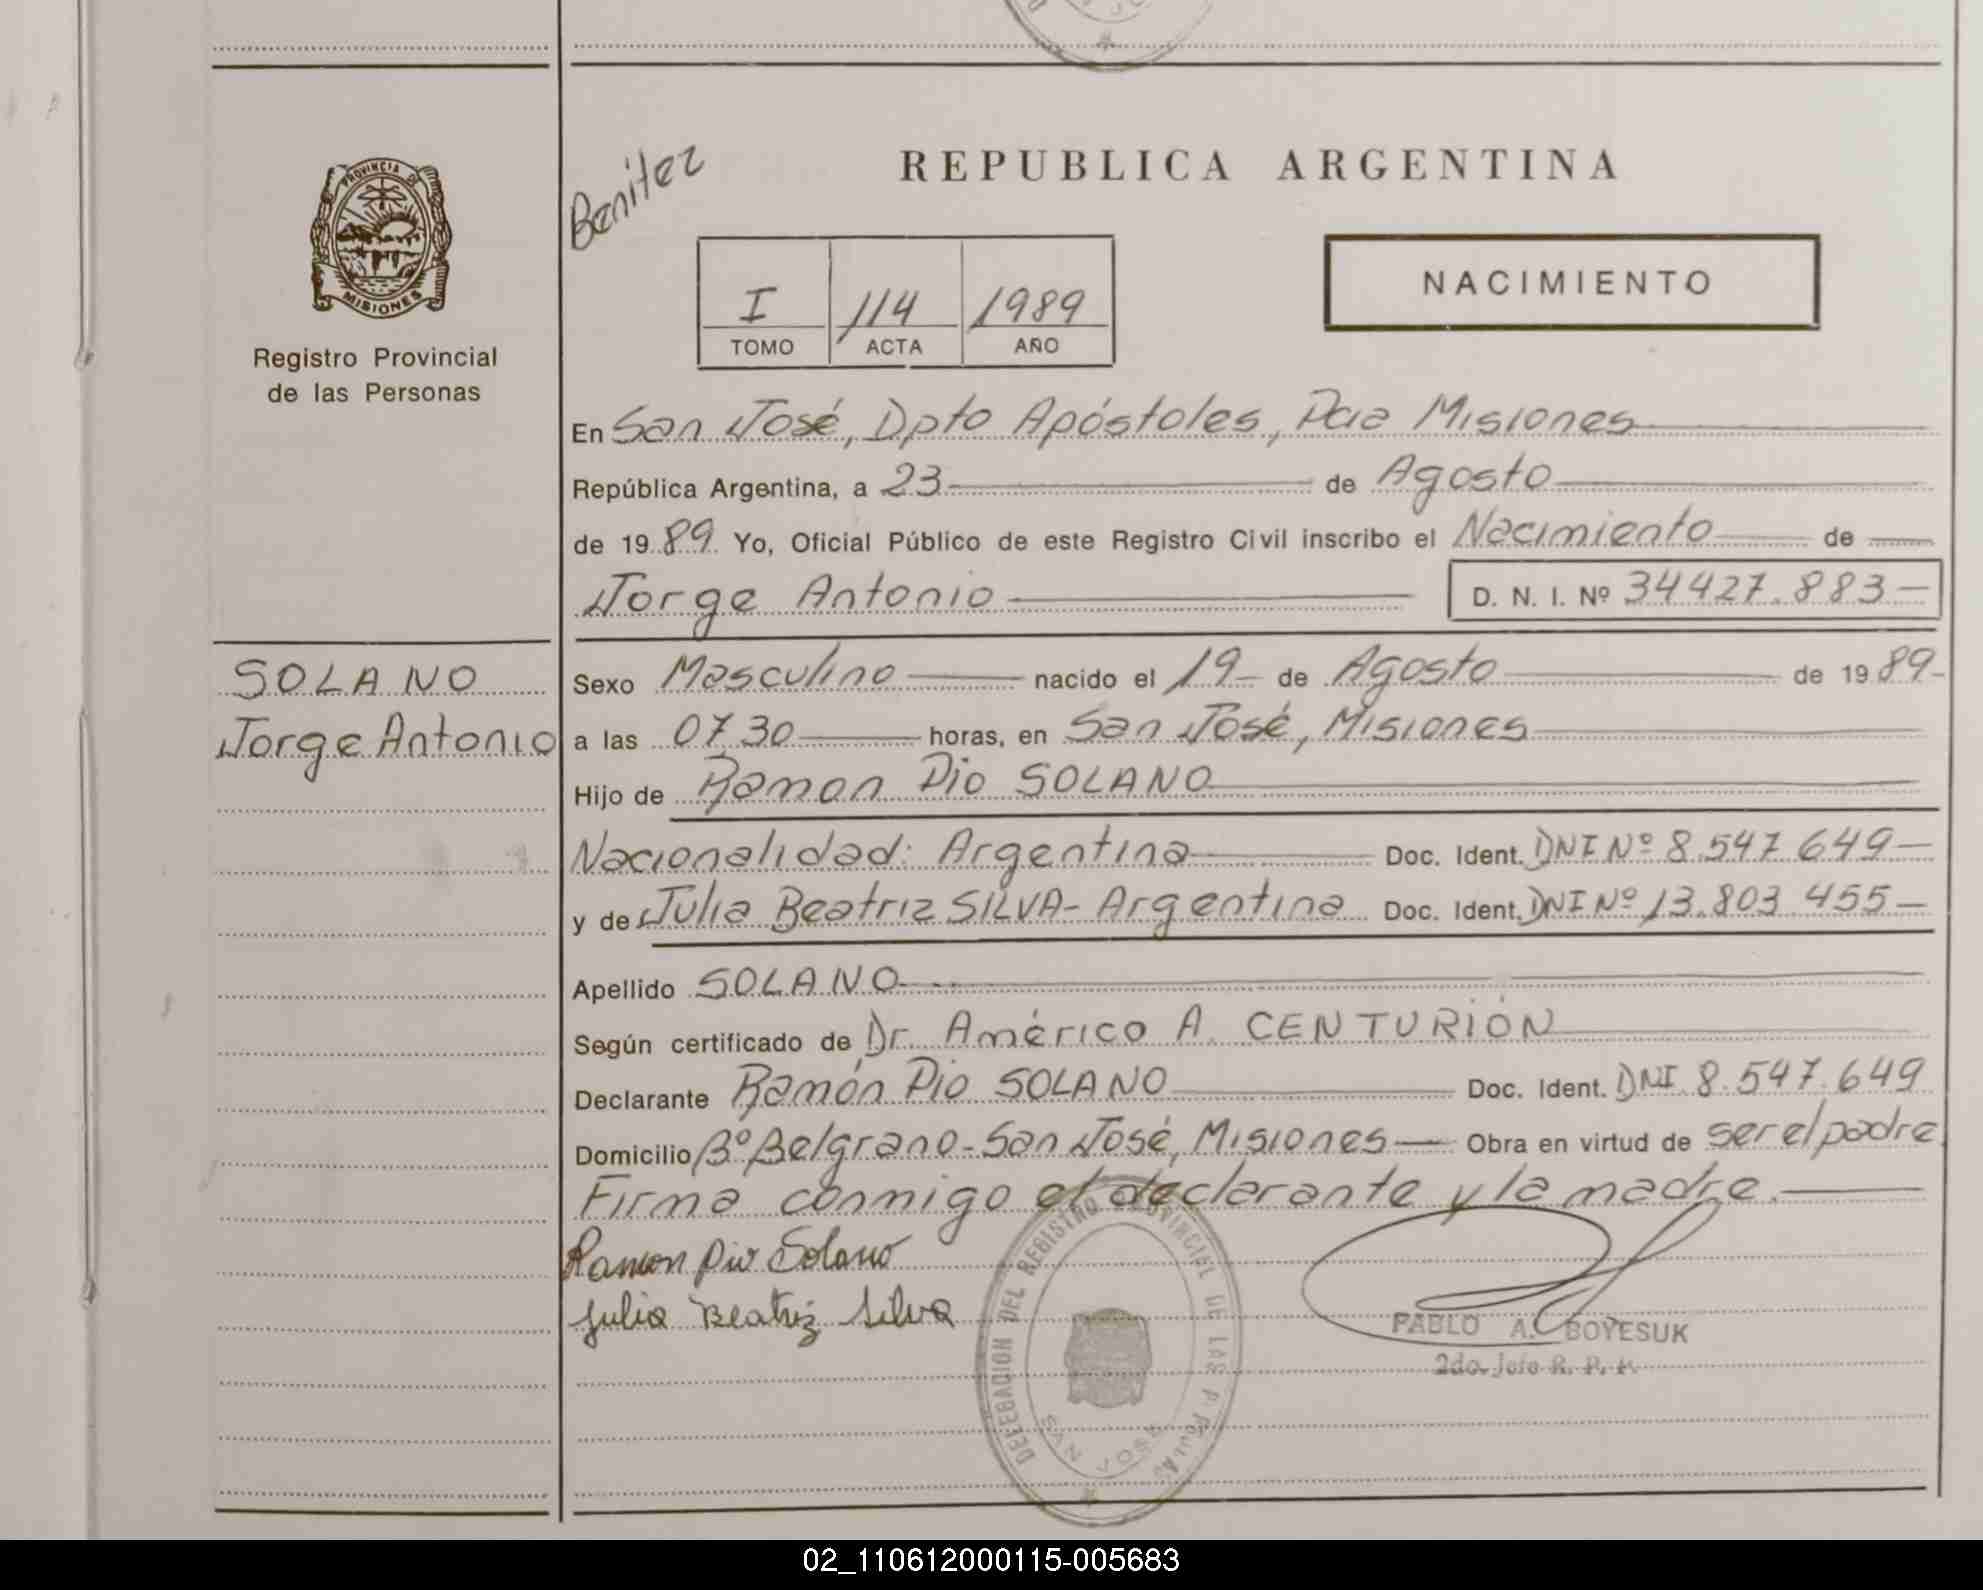 REPUBLICA ARGENTINA
Benitez
PROVINCIA DE
MISIONES
Registro Provincial
de las Personas
I 114 1989
TOMO ACTA AÑO
NACIMIENTO
En San José, Dpto Apóstoles, Pcia Misiones
República Argentina, a 23 de Agosto
de 1989 Yo, Oficial Público de este Registro Civil inscribo el Nacimiento de
Jorge Antonio D. N. I. Nº 34427.883
SOLANO
Jorge Antonio
Sexo Masculino nacido el 19 de Agosto de 1989
a las 07,30 horas, en San José, Misiones
Hijo de Ramon Pio SOLANO
Nacionalidad: Argentina Doc. Ident. DNI Nº 8.547.649
y de Julia Beatriz SILVA - Argentina Doc. Ident. DNI Nº 13.803.455
Apellido SOLANO
Según certificado de Dr. Américo A. CENTURIÓN
Declarante Ramón Pio SOLANO Doc. Ident. DNI 8.547.649
Domicilio Bº Belgrano - San José, Misiones Obra en virtud de ser el padre
Firma conmigo el declarante y la madre.
Ramon Pio Solano
Julia Beatriz Silva
DELEGACION DEL REGISTRO PROVINCIAL DE LAS
SAN JOSE
PABLO A. BOYESUK
2do. Jefe R. P. P.
02_110612000115-005683